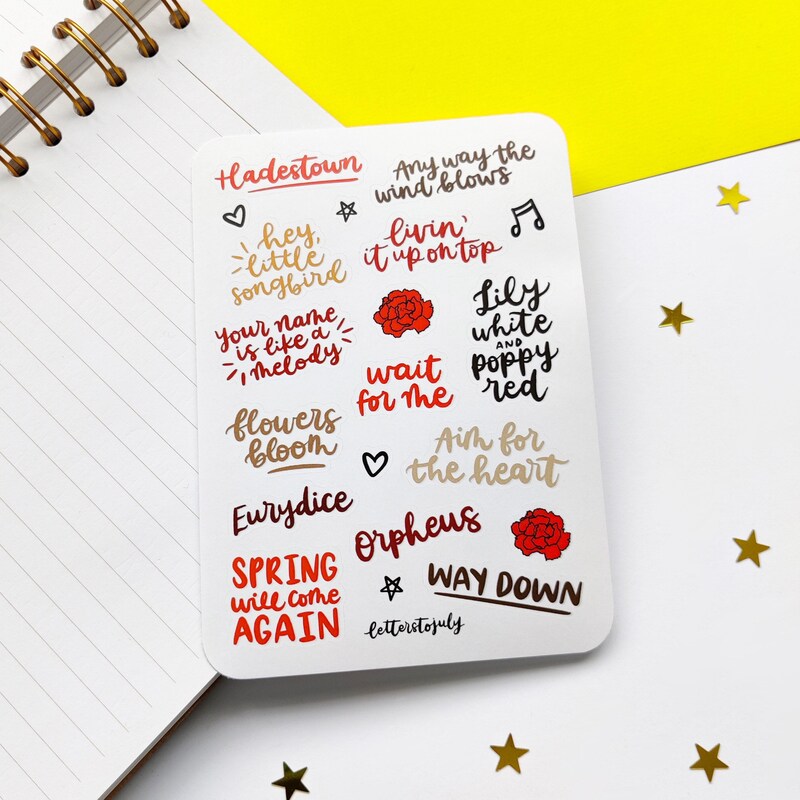 Hadestown
Any way the
wind blows
hey,
little
songbird
livin'
it up on top
your name
is like a
melody
Lily
white
AND
poppy
red
wait
for me
flowers
bloom
Aim for
the heart
Eurydice
Orpheus
SPRING
will come
AGAIN
WAY DOWN
letterstojuly